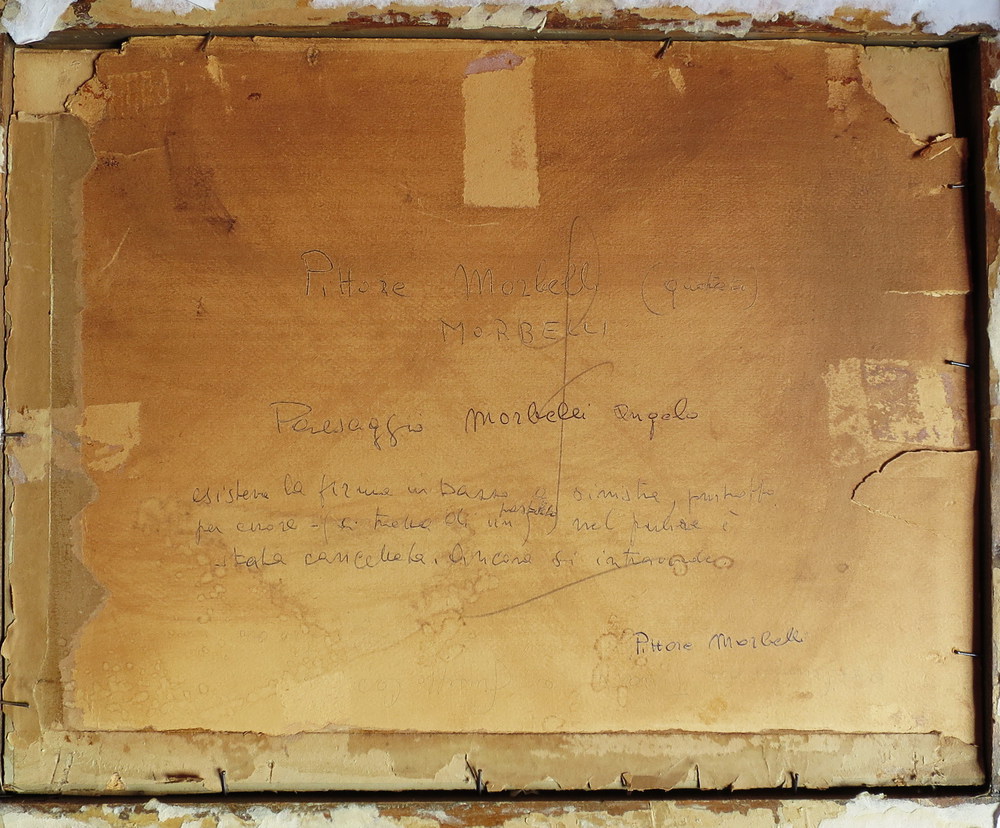 Pittore Morbelli
MORBELLI
Paesaggio Morbelli Angelo
esisteva la firma in basso a sinistra, purtroppo
per errore si tratta di un pastello nel pulire è
stata cancellata. Ancora si intravede
Pittore Morbelli